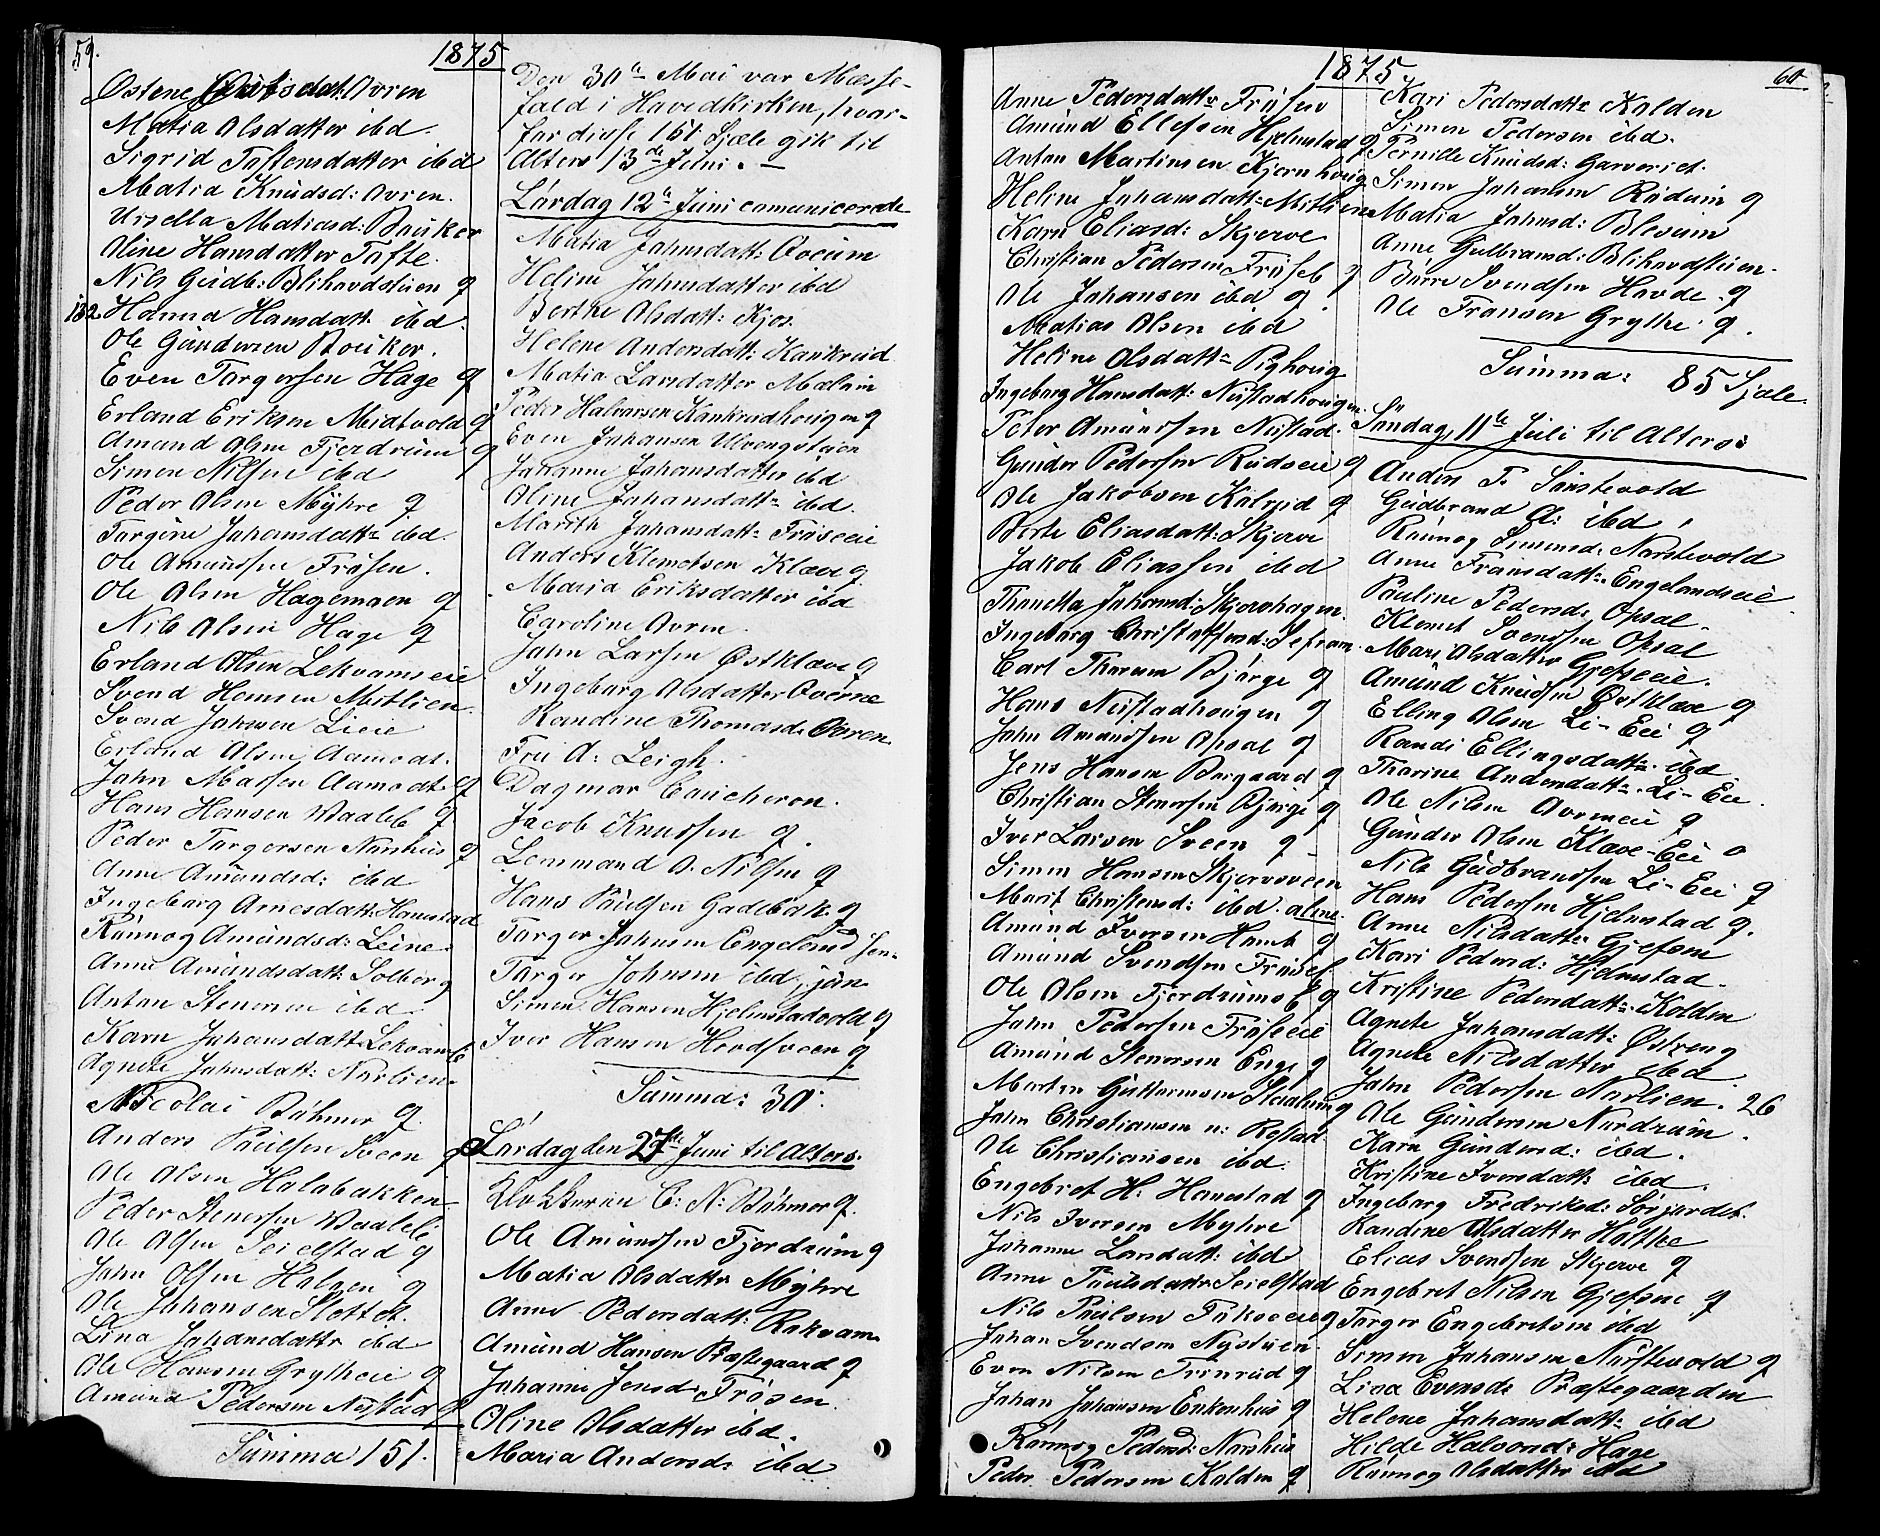 59.
1875
Østene Avren
Matia Olsdatter ibd.
Sigrid Tostensdatter ibd
Matia Knudsd: Avren.
Ursella Matiasd: Bauker
Oline Hansdatter Tofte.
Nils Gudb: Blihovdstuen g
132 Hanna Hansdatt. ibd.
Ole Gundersen
Even Torgersen Hage g
Erland Eriksen Midtvold g
Amund Olsen Fjerdrum g
Simen Nilsen ibd
Peder Olsen Myhre g
Torgine Johansdatt: ibd.
Ole Amundsen Frøsen.
Ole Olsen Hagemoen g
Nils Olsen Hage g
Erland Olsen Lekvamseie
Svend Hansen Mitlien.
Svend Johnsen Lieie
Erland Olsen Aamodt.
John Matsen Aamodt g
Hans Hansen Vaaleb g
Peder Torgersen Norshus g
Anne Amundsd: ibd
Ingeborg Arnesdatt: Hanestad
Rønnog Amundsd: Leine.
Anne Amundsdatt: Solberg
Anton Stenersen ibd.
Karn Johansdatt: Lekvam
Agnete Johnsdatt: Norlien.
Nicolai Bøhmer g.
Anders Paulsen Sveen g
Ole Olsen Halabakken
Peder Stenersen Vaaleb
Ole Olsen Seielstad g
John Olsen Halsen g
Ole Johansen Slottet.
Lina Johansdattr ibd
Ole Hansen Grytheie g
Amund Pedersen Nystad g
Summa 151.
Den 30te Mai var Messe-
fald i Hovedkirken, hvor-
for disse 151 Sjæle gik til
Alters 13de Juni. —
Lørdag 12te Juni comunicerede
Matia Johnsdatt: Qveum
Heline Johnsdatter ibd
Berthe Olsdatt: Kjos.
Helene Andersdatt: Kankrud
Matia Larsdatter Mælum
Peder Halvorsen Kankrudhougen g
Even Johansen Ulvengstuen
Johanne Johansdatter ibd
Oline Johansdatt: ibd.
Marith Johansdatt: Frøseeie
Anders Klemetsen Klæve g.
Maria Eriksdatter ibd
Caroline Avren.
John Larsen Østklæve g
Ingeborg Olsdatter Qverne
Randine Thomasd: Avren.
Fru A: Leigh.
Dagmar Caucheron.
Jacob Knudsen g.
Lemmand A. Nilsen g
Hans Paulsen Gadlbak. g
Torger Johnsen Engeland Sen-
Torger Johnsen ibd, jun.
Simen Hansen Hjelmstadvold g
Iver Hansen Hovdsveen g.
Summa: 30.
Lørdag den 27de Juni til Alters:
C: N: Bøhmer g.
Ole Amundsen Fjerdrum g
Matia Olsdattr Myhre
Anne Pedersdatt: Rekvam
Amund Hansen Præstegaard g
Johanne Jensd: Frøsen.
Oline Olsdatter ibd.
Maria Andersd: ibd
1875
60
Anne Pedersdattr Frøsen
Amund Ellefsen Hjelmstad g
Anton Martinsen Kjernhoug
Heline Johansdatt: Mitlien
Karn Eliasd: Skjerve
Christian Pedersen Frøseb g
Ole Johansen ibd g.
Matias Olsen ibd
Heline Olsdatt: Pighoug
Ingeborg Hansdatt: Nustadhougen.
Peter Amundsen Nustad.
Gunder Pedersen Rudseie g
Ole Jakobsen Kalrud g
Berte Eliasdatt: Skjerve
Jakob Eliassen ibd
Thonetta Johansd: Skjervhagen
Ingeborg Christoffersd: Sefram.
Carl Thoresen Bjørge g
Hans Nustadhougen g
John Amundsen Opsal g
Jens Hansen Borgaard g
Christian Stenersen Bjørge g
Iver Larsen Sveen g
Simen Hansen Skjervsveen
Marit Christensd: ibd. alene.
Amund Iversen Homb g
Amund Svendsen Frøsef.
Ole Olsen Fjerdrums g
John Pedersen Frøseeie
Amund Stenersen Enge g
Morten Guttormsen Stadeng
John Christiansen n: Rostad.
Ole Christiansen ibd.
Engebret H. Hanestad g
Nils Iversen Myhre
Johanne Larsdatt: ibd
Anne Paulsdattr Seielstad
Nils Paulsen Fykseeie g
Johan Svendsen Nystuen
Even Nilsen Trinrud g
Johan Johansen Enkenhus g
Rønnog Pedersd: Norshus
Peder Pedersen Kolden g
Kari Pedersdattr Kolden
Simen Pedersen ibd.
Pernille Knudsd: Garveriet.
Simen Johansen Rudum g
Matia Johnsd: Blesum
Anne Gulbransd: Blihovdstuen.
Børre Svendsen Hovde. g
Ole Fransen Grythe g.
Summa: 85 Sjæle.
Søndag, 11te Juli til Alters:
Anders T. Sørstevold
Gudbrand A: ibd.
Rønnog Simensd: Norstevold
Anne Fransdatt: Engelandseie
Pauline Pedersd: Opsal.
Klemet Svendsen Opsal
Mari Olsdatter Gjefseeie.
Amund Knudsen Østklæve g
Elling Olsen Li-Eie g
Randi Ellingsdatt: ibd
Thorine Andersdatt: Li-Eie.
Ole Nilsen Avreneie g
Gunder Olsen Klæve-Eie o
Nils Gudbrandsen Li-Eie g
Hans Pedersen Hjelmstad g.
Anne Nilsdattr Gjefsen
Kari Pedersd: Hjelmstad.
Kristine Pedersdatt: Kolden
Agnete Johansdatt: Østreng
Agnete Nilsdatter ibd.
John Pedersen Norlien. 26
Ole Gundersen Nordrum.
Karn Gundersd: ibd.
Kristine Iversdatt: ibd.
Ingeborg Fredriksd: Sørjordet.
Randine Olsdatter Holthe
Elias Svendsen Skjerve g
Engebret Nilsen Gjefsne g
Torger Engebretsen ibd
Simen Johansen Norstevold g
Lisa Evensd: Præstegaarden
Helene Johansdatt: ibd
Hilde Halvorsd: Hage
Rønnog Olsdatter ibd